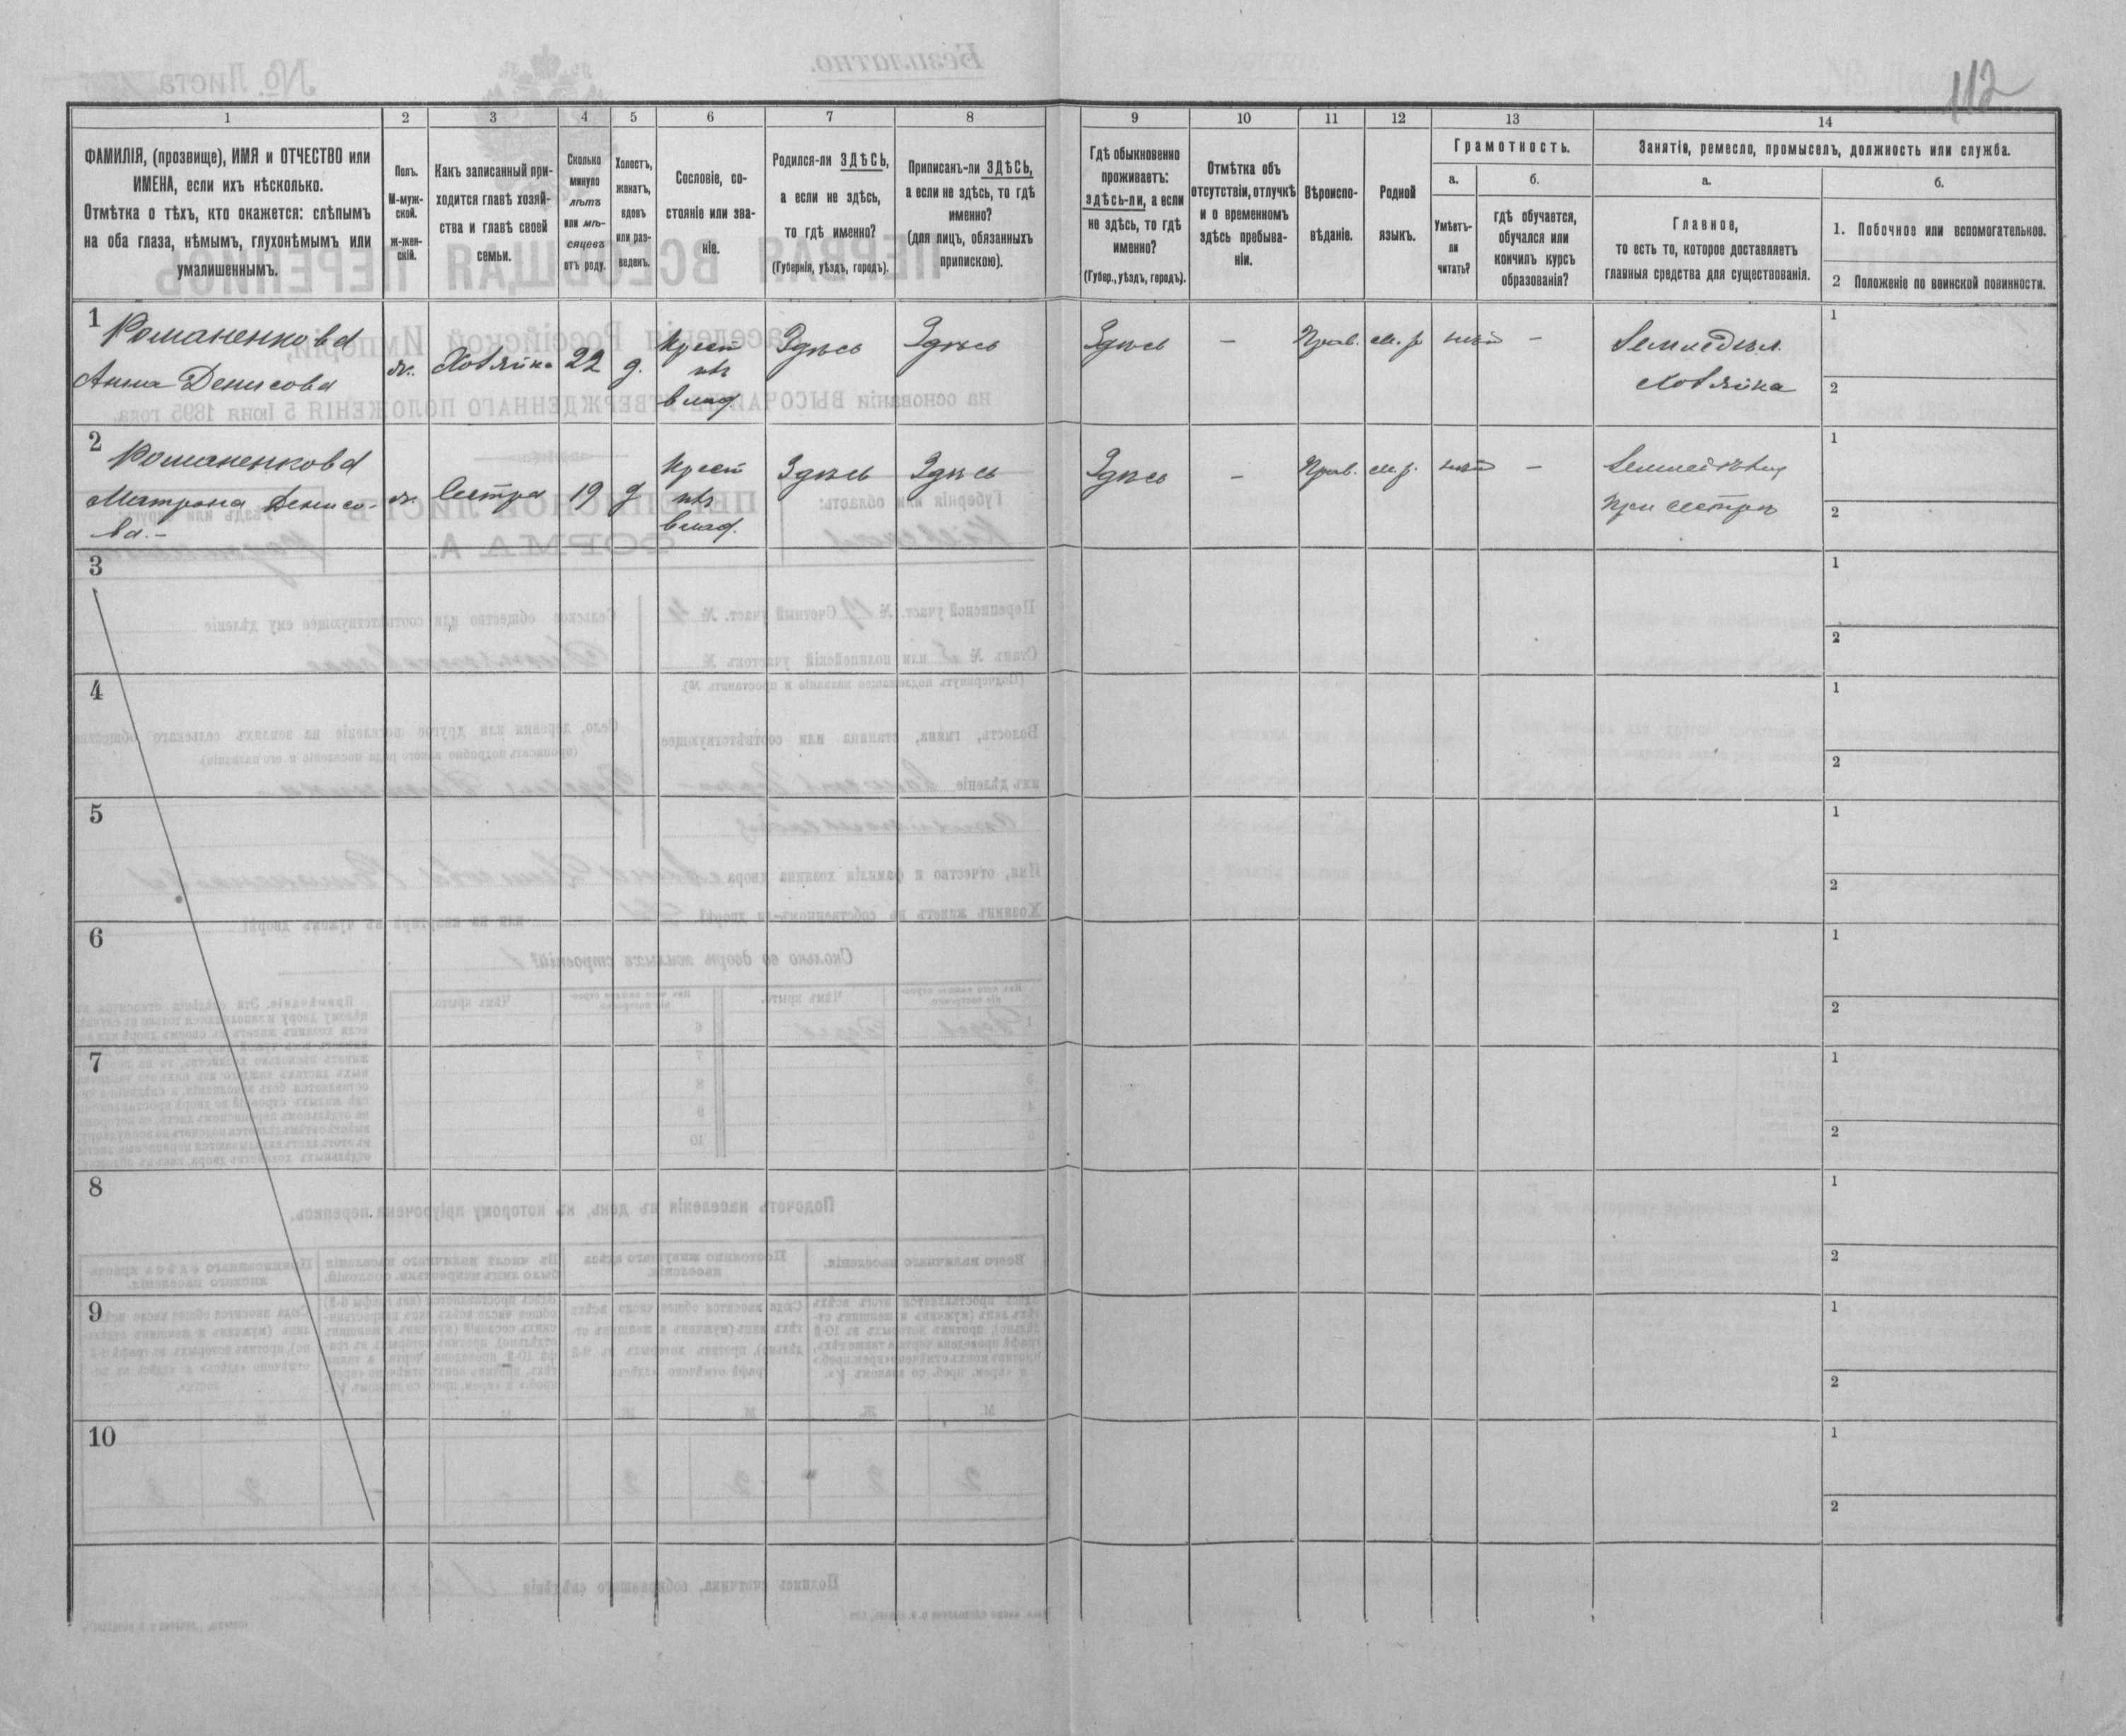 112
1 2 3 4 5 6 7 8 9 10 11 12 13 14
ФАМИЛІЯ, (прозвище), ИМЯ и ОТЧЕСТВО или
ИМЕНА, если ихъ нѣсколько.
Отмѣтка о тѣхъ, кто окажется: слѣпымъ
на оба глаза, нѣмымъ, глухонѣмымъ или
умалишеннымъ.
Полъ.
М-муж-
ской.
ж-жен-
скій.
Какъ записанный при-
ходится главѣ хозяй-
ства и главѣ своей
семьи.
Сколько
минуло
лѣтъ
или мѣ-
сяцевъ
отъ роду.
Холостъ,
женатъ,
вдовъ
или раз-
веденъ.
Сословіе, со-
стояніе или зва-
ніе.
Родился-ли ЗДѢСЬ,
а если не здѣсь,
то гдѣ именно?
(Губернія, уѣздъ, городъ).
Приписанъ-ли ЗДѢСЬ,
а если не здѣсь, то гдѣ
именно?
(для лицъ, обязанныхъ
припискою).
Гдѣ обыкновенно
проживаетъ:
здѣсь-ли, а если
не здѣсь, то гдѣ
именно?
(Губер., уѣздъ, городъ).
Отмѣтка объ
отсутствіи, отлучкѣ
и о временномъ
здѣсь пребыва-
ніи.
Вѣроиспо-
вѣданіе.
Родной
языкъ.
Грамотность.
а.
Умѣетъ-
ли
читать?
б.
гдѣ обучается,
обучался или
кончилъ курсъ
образованія?
Занятіе, ремесло, промыселъ, должность или служба.
а.
Главное,
то есть то, которое доставляетъ
главныя средства для существованія.
б.
1. Побочное или вспомогательное.
2 Положеніе по воинской повинности.
1 Романенкова
Анна Денисова
ж. Хозяйка 22 д.
Крест
изъ
влад.
Здѣсь Здѣсь Здѣсь – Прав. м. р нѣт –
Земледѣл.
Хозяйка
1
2
2 Романенкова
Матрона Денисо-
ва.–
ж. Сестра 19 д
Крест
изъ
влад.
Здѣсь Здѣсь Здѣсь – Прав. м. р. нѣт –
при сестрѣ
1
2
3 1
2
4 1
2
5 1
2
6 1
2
7 1
2
8 1
2
9 1
2
10 1
2